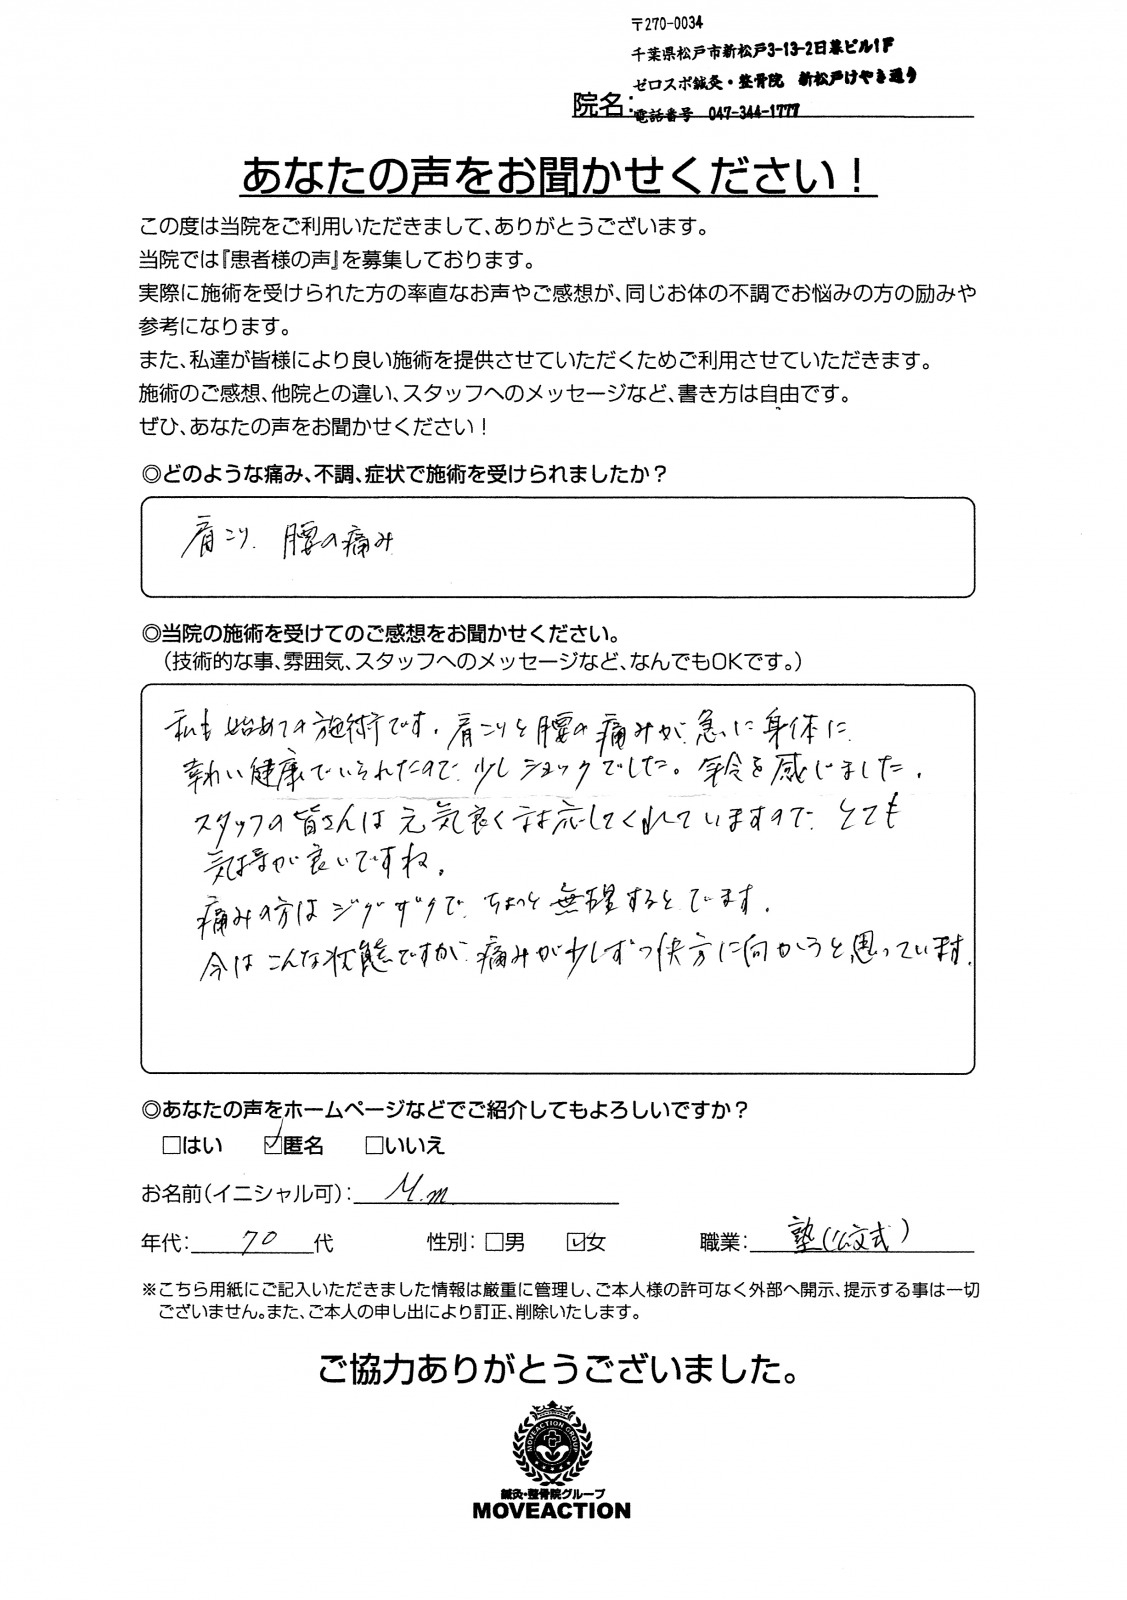 〒270-0034
千葉県松戸市新松戸3-13-2日暮ビル1F
ゼロスポ鍼灸・整骨院 新松戸けやき通り
院名:
電話番号 047-344-1777
あなたの声をお聞かせください!
この度は当院をご利用いただきまして、ありがとうございます。
当院では『患者様の声』を募集しております。
実際に施術を受けられた方の率直なお声やご感想が、同じお体の不調でお悩みの方の励みや
参考になります。
また、私達が皆様により良い施術を提供させていただくためご利用させていただきます。
施術のご感想、他院との違い、スタッフへのメッセージなど、書き方は自由です。
ぜひ、あなたの声をお聞かせください!
◎どのような痛み、不調、症状で施術を受けられましたか?
肩こり、腰の痛み
◎当院の施術を受けてのご感想をお聞かせください。
(技術的な事、雰囲気、スタッフへのメッセージなど、なんでもOKです。)
私も始めての施術です。肩こりと腰の痛みが急に身体に
健康でいられたので、少しショックでした。年令を感じました。
スタッフの皆さんは元気良く対応してくれていますので、とても
気持が良いですね。
痛みの方はジグザグで、ちょっと無理するとでます。
今はこんな状態ですが、痛みが少しずつ快方に向かうと思っています。
◎あなたの声をホームページなどでご紹介してもよろしいですか?
□はい ☑匿名 □いいえ
お名前(イニシャル可): M.m
年代: 70 代 性別: □男 ☑女 職業: 塾(公文式)
※こちら用紙にご記入いただきました情報は厳重に管理し、ご本人様の許可なく外部へ開示、提示する事は一切
ございません。また、ご本人の申し出により訂正、削除いたします。
ご協力ありがとうございました。
MOVEACTION GROUP
鍼灸・整骨院グループ
MOVEACTION